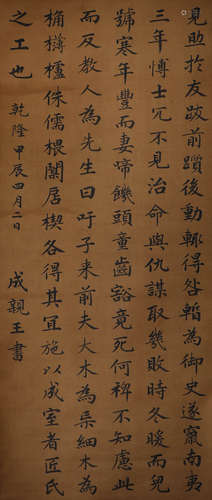 見助於友跋前躓後動輒得咎暫為御史遂竄南夷
三年博士冗不見治命與仇謀取幾敗時冬暖而兒
號寒年豐而妻啼饑頭童齒豁竟死何裨不知慮此
而反教人為先生曰吁子来前夫大木為杗細木為
桷欂櫨侏儒椳闑居楔各得其宜施以成室者匠氏
之工也 乾隆甲辰四月二日 成親王書